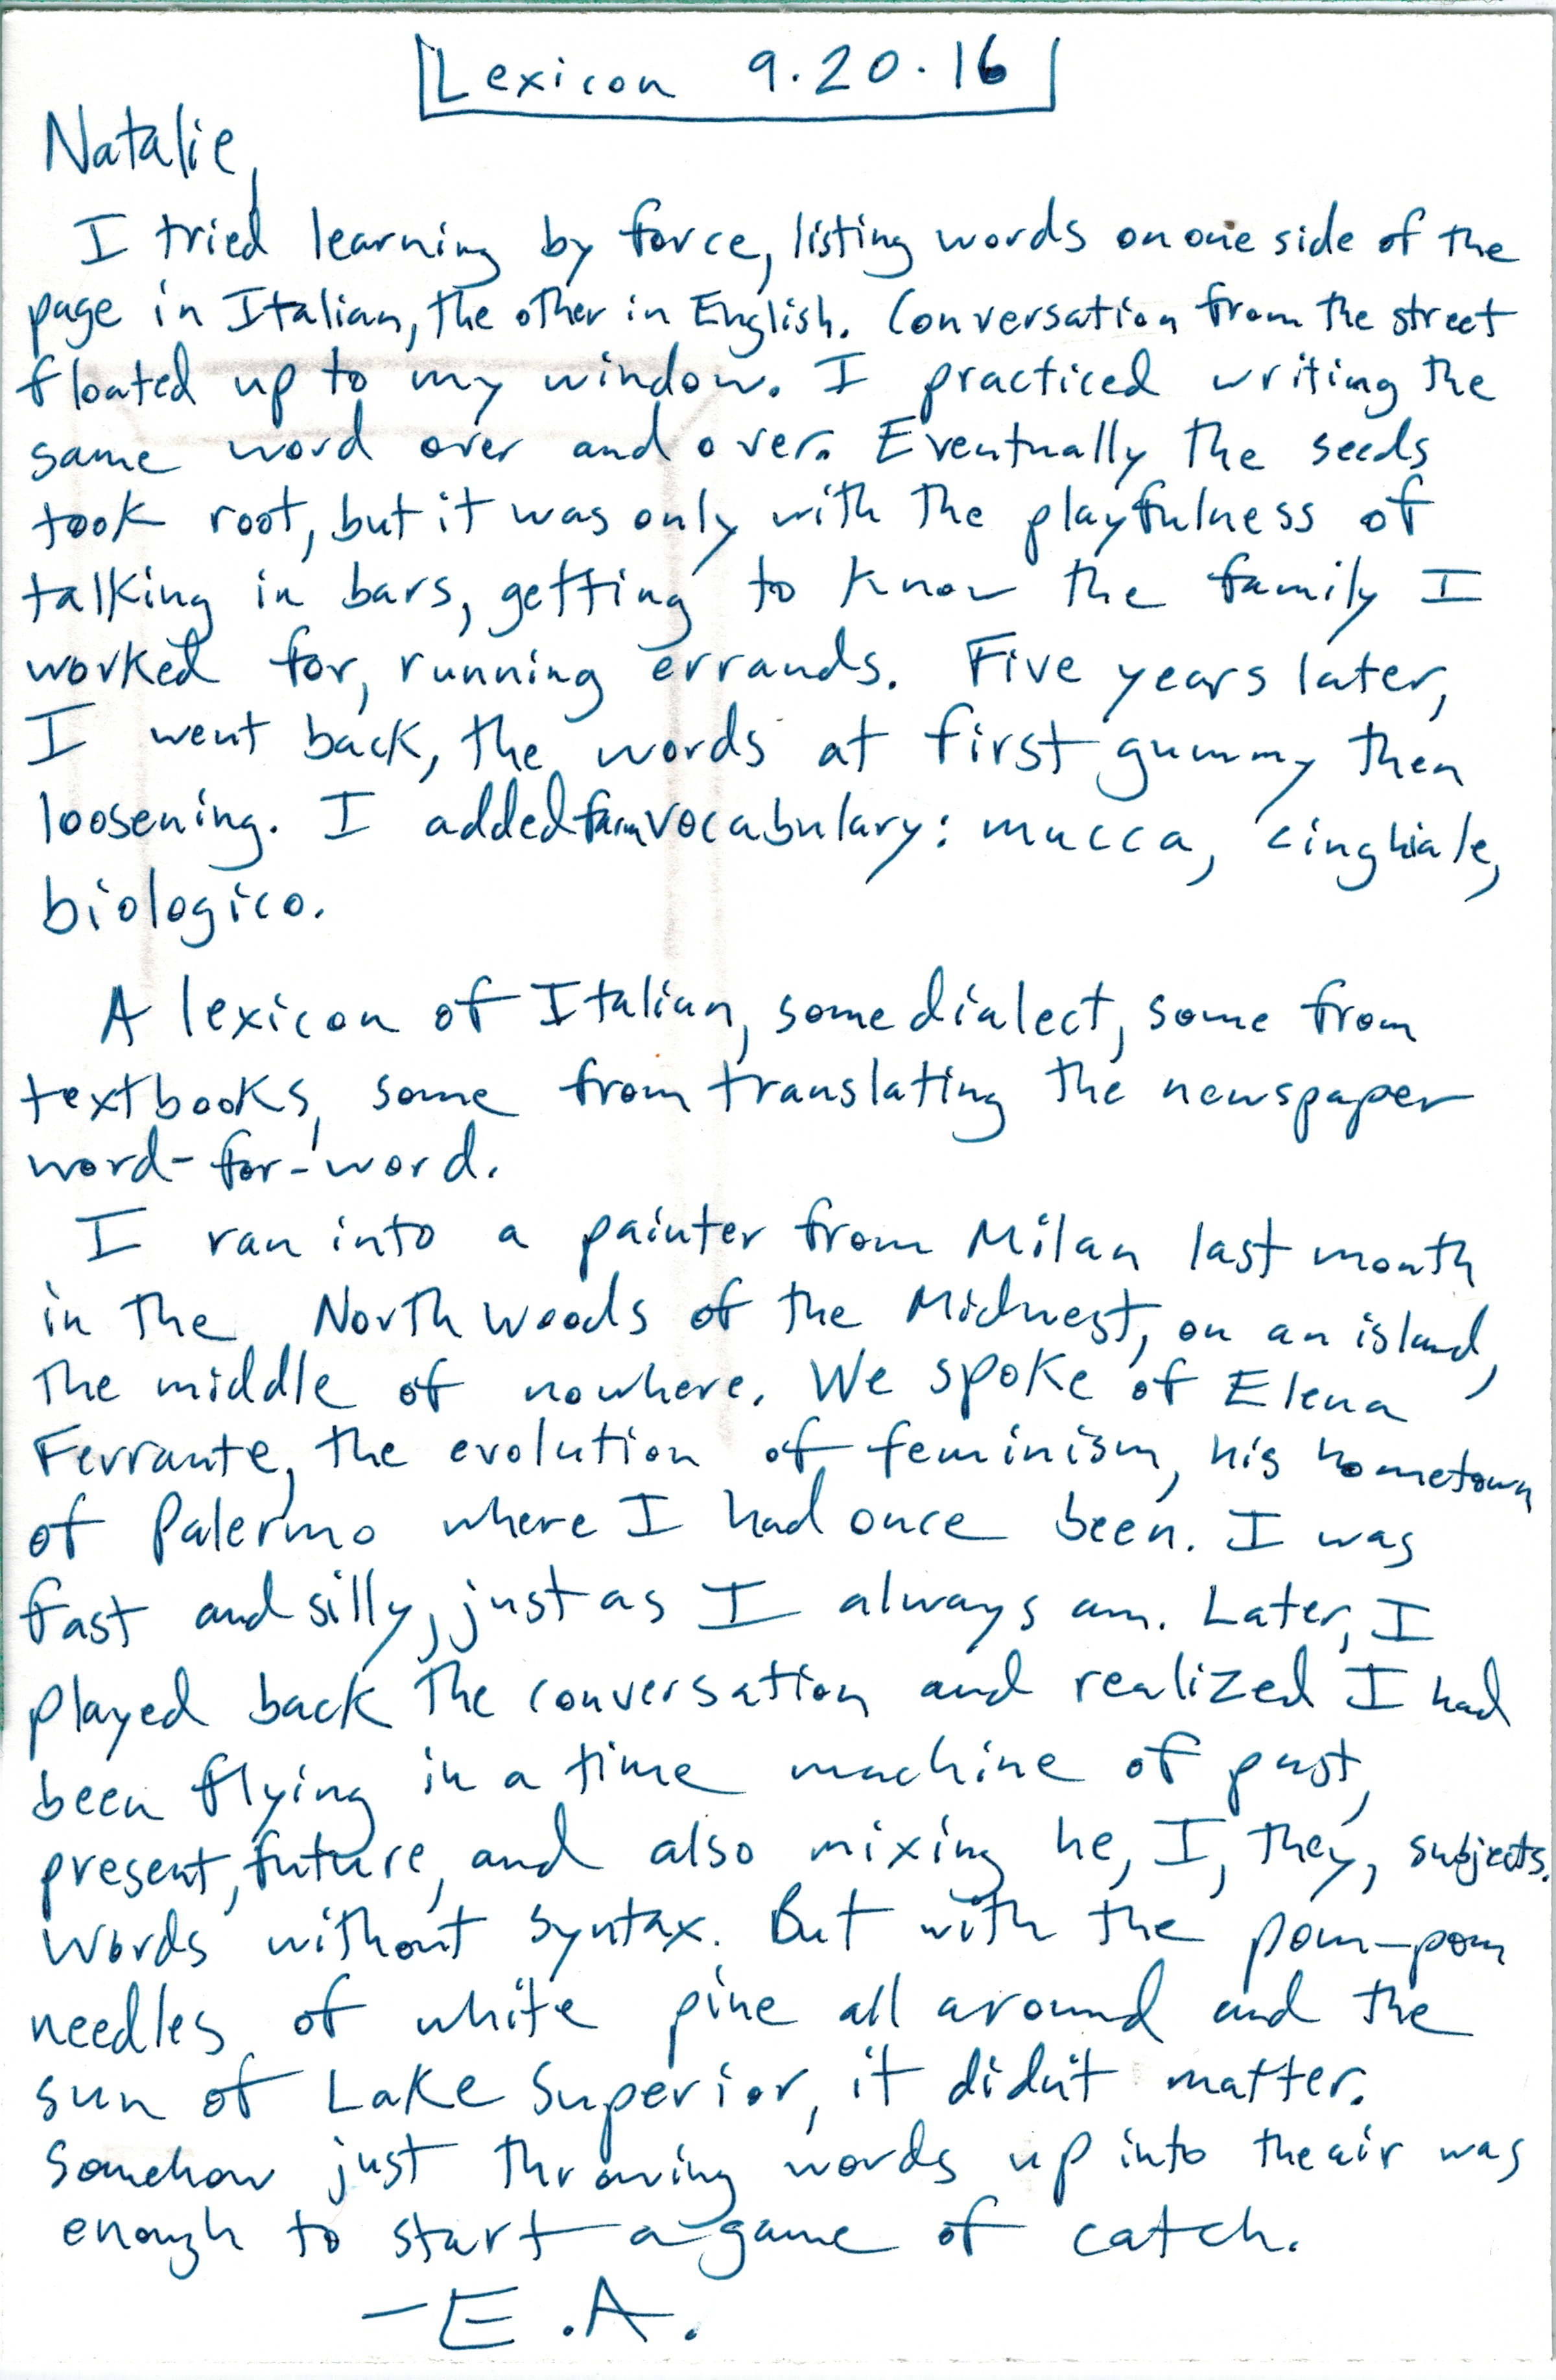 Lexicon 9.20.16
Natalie,
I tried learning by force, listing words on one side of the
page in Italian, the other in English. Conversation from the street
floated up to my window. I practiced writing the
same word over and over. Eventually the seeds
took root, but it was only with the playfulness of
talking in bars, getting to know the family I
worked for, running errands. Five years later,
I went back, the words at first gummy then
loosening. I added farm vocabulary: mucca, cinghiale,
biologico.
A lexicon of Italian, some dialect, some from
textbooks, some from translating the newspaper
word-for-word.
I ran into a painter from Milan last month
in the North Woods of the Midwest, on an island,
the middle of nowhere. We spoke of Elena
Ferrante, the evolution of feminism, his hometown
of Palermo where I had once been. I was
fast and silly, just as I always am. Later, I
played back the conversation and realized I had
been flying in a time machine of past,
present, future, and also mixing he, I, they, subjects.
Words without syntax. But with the pom-pom
needles of white pine all around and the
sun of Lake Superior, it didn't matter.
Somehow just throwing words up into the air was
enough to start a game of catch.
-E.A.